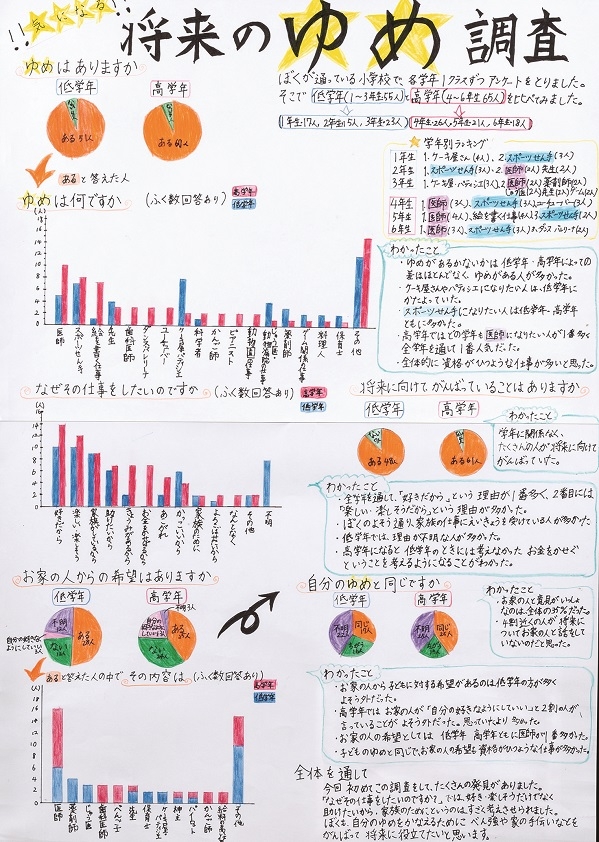 !!気になる!!
将来のゆめ調査
ゆめはありますか
低学年
高学年
ある51人
ある62人
ぼくが通っている小学校で、各学年1クラスずつアンケートをとりました。
そこで低学年(1〜3年生55人)と高学年(4〜6年生65人)を比べてみました。
1年生17人、2年生15人、3年生23人
4年生26人、5年生21人、6年生18人
あると答えた人
ゆめは何ですか (ふく数回答あり)
高学年
低学年
(人)
16
14
12
10
8
6
4
2
0
医師
スポーツせん手
絵を書く仕事
先生
歯科医師
ダンス・バレリーナ
ユーチューバー
ケーキ屋・パティシエ
科学者
かんご師
ピアニスト
動物園の仕事
薬剤師
ゲーム関係の仕事
料理人
保育士
その他
学年別ランキング
1年生 1.ケーキ屋さん(4人)、2.スポーツせん手(3人)
2年生 1.スポーツせん手(3人)、2.医師(2人)先生(2人)
3年生 1.ケーキ屋・パティシエ(3人)2.医師(2人)薬剤師(2人)
4年生 1.医師(3人)、スポーツせん手(3人)ユーチューバー(3人)
5年生 1.医師(4人)、絵を書く仕事(4人)3.スポーツせん手(2人)
6年生 1.医師(3人)、スポーツせん手(3人)3.ダンス・バレリーナ(2人)
わかったこと
・ゆめがあるかないかは低学年・高学年によっての
差はほとんどなく、ゆめがある人が多かった。
・ケーキ屋さんやパティシエになりたい人は、低学年に
かたよっていた。
・スポーツせん手になりたい人は低学年・高学年
ともに多かった。
・高学年ではどの学年も医師になりたい人が1番多く
全学年を通して1番人気だった。
・全体的に資格がひつような仕事が多いと思った。
なぜその仕事をしたいのですか (ふく数回答あり)
高学年
低学年
(人)
14
12
10
8
6
4
2
0
好きだから
楽しい・楽しそう
家族がしているから
助けたいから
お金をかせげるから
あこがれ
かっこいいから
家族のために
なんとなく
その他
不明
将来に向けてがんばっていることはありますか
低学年
高学年
ある48人
ある61人
わかったこと
学年に関係なく、
たくさんの人が将来に向けて
がんばっていた。
わかったこと
・全学年通して、「好きだから」という理由が1番多く、2番目には
「楽しい・楽しそうだから」という理由が多かった。
・ぼくのよそう通り、家族の仕事にえいきょうを受けている人が多かった。
・低学年では、理由が不明な人が多かった。
・高学年になると低学年のときには考えなかったお金をかせぐ
ということを考えるようになることがわかった。
お家の人からの希望はありますか
低学年
高学年
不明
ある
ない
自分の好きなようにしていい
不明3人
ある
ない
自分のゆめと同じですか
低学年
高学年
不明
同じ
ちがう
不明
同じ
ちがう
わかったこと
・お家の人と意見がいっしょ
なのは全体の35%だった。
・4割近くの人が将来に
ついてお家の人と話をして
いないのだと思った。
あると答えた人の中で その内容は (ふく数回答あり)
高学年
低学年
(人)
18
16
14
12
10
8
6
4
2
0
医師
薬剤師
じゅう医
歯科医師
べんご士
先生
保育士
ケーキ屋・パティシエ
神主
パイロット
かんご師
その他
わかったこと
・お家の人から子どもに対する希望があるのは低学年の方が多く
よそう外だった。
・高学年ではお家の人が「自分の好きなようにしていい」と2割の人が、
言っていることがよそう外だった。思っていたより多かった。
・お家の人の希望としては低学年・高学年ともに医師が1番多かった。
・子どものゆめと同じで、お家の人の希望も資格がひつような仕事が多かった。
全体を通して
今回初めてこの調査をして、たくさんの発見がありました。
「なぜその仕事をしたいのですか?」では、好き・楽しそうだけでなく
助けたいから、家族のためにというのはすごく考えさせられました。
ぼくも、自分のゆめをかなえるためにべん強や家の手伝いなどを
がんばって将来に役立てたいと思います。